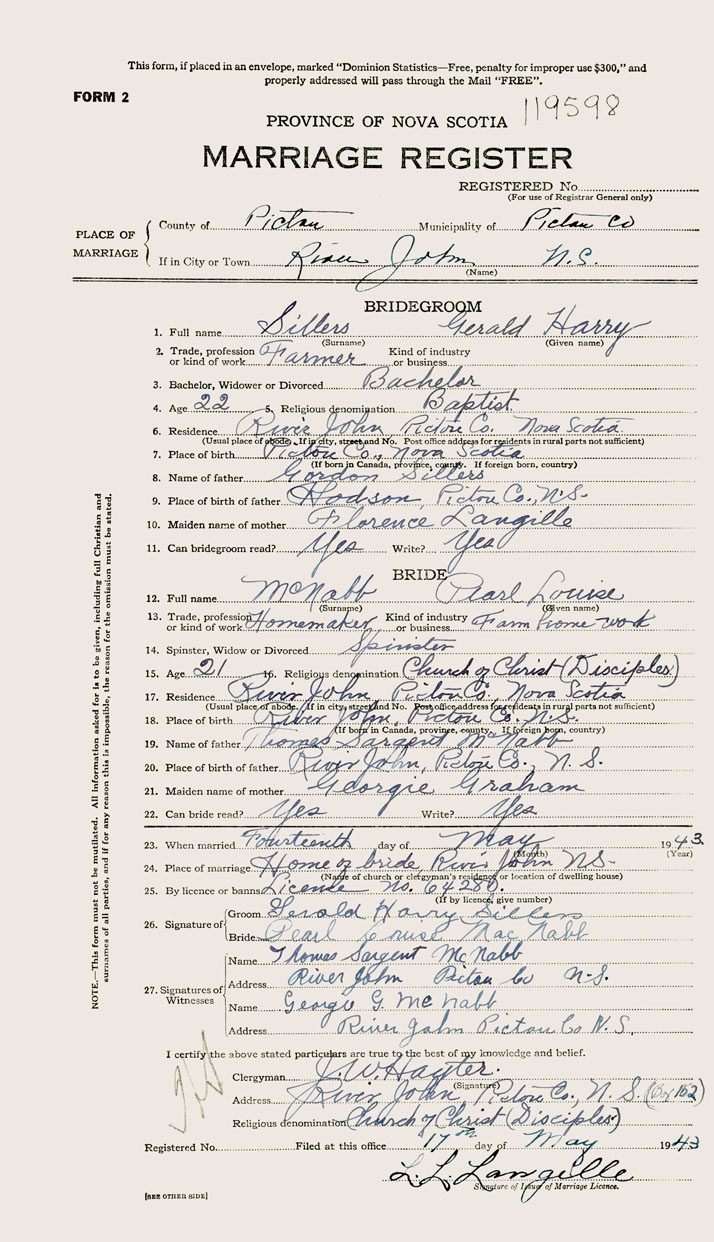 This form, if placed in an envelope, marked "Dominion Statistics—Free, penalty for improper use $300," and
properly addressed will pass through the Mail "FREE".
FORM 2
119598
PROVINCE OF NOVA SCOTIA
MARRIAGE REGISTER
REGISTERED No.
(For use of Registrar General only)
PLACE OF MARRIAGE
County of Pictou Municipality of Pictou Co
If in City or Town River John N.S.
(Name)
BRIDEGROOM
1. Full name Sillers Gerald Harry
(Surname) (Given name)
2. Trade, profession or kind of work Farmer Kind of industry or business
3. Bachelor, Widower or Divorced Bachelor
4. Age 22 5. Religious denomination Baptist
6. Residence River John Pictou Co. Nova Scotia
(Usual place of abode. If in city, street and No. Post office address for residents in rural parts not sufficient)
7. Place of birth Pictou Co., Nova Scotia
(If born in Canada, province, county. If foreign born, country)
8. Name of father Gordon Sillers
9. Place of birth of father Hodson, Pictou Co. N.S.
10. Maiden name of mother Florence Langille
11. Can bridegroom read? Yes Write? Yes
BRIDE
12. Full name McNabb Pearl Louise
(Surname) (Given name)
13. Trade, profession or kind of work Homemaker Kind of industry or business Farm home work
14. Spinster, Widow or Divorced Spinster
15. Age 21 16. Religious denomination Church of Christ (Disciples)
17. Residence River John, Pictou Co., Nova Scotia
(Usual place of abode. If in city, street and No. Post office address for residents in rural parts not sufficient)
18. Place of birth River John, Pictou Co. N.S.
(If born in Canada, province, county. If foreign born, country)
19. Name of father Thomas Sargent McNabb
20. Place of birth of father River John, Pictou Co., N. S.
21. Maiden name of mother Georgie Graham
22. Can bride read? Yes Write? Yes
23. When married Fourteenth day of May 1943
(Month) (Year)
24. Place of marriage Home of bride River John NS-
(Name of church or clergyman's residence or location of dwelling house)
25. By licence or banns License No. 64280.
(If by licence, give number)
26. Signature of
Groom Gerald Harry Sillers
Bride Pearl Louise MacNabb
27. Signatures of Witnesses
Name Thomas Sargent McNabb
Address River John Pictou Co N-S.
Name Georgie G. McNabb
Address River John Pictou Co N.S.
I certify the above stated particulars are true to the best of my knowledge and belief.
Clergyman J. W. Hayter.
(Signature)
Address River John, Pictou Co., N. S. (Box 152)
Religious denomination Church of Christ (Disciples)
Registered No. Filed at this office 17th day of May 1943
L. L. Langille
Signature of Issuer of Marriage Licence.
[SEE OTHER SIDE]
NOTE.—This form must not be mutilated. All information asked for is to be given, including full Christian and
surnames of all parties, and if for any reason this is impossible, the reason for the omission must be stated.